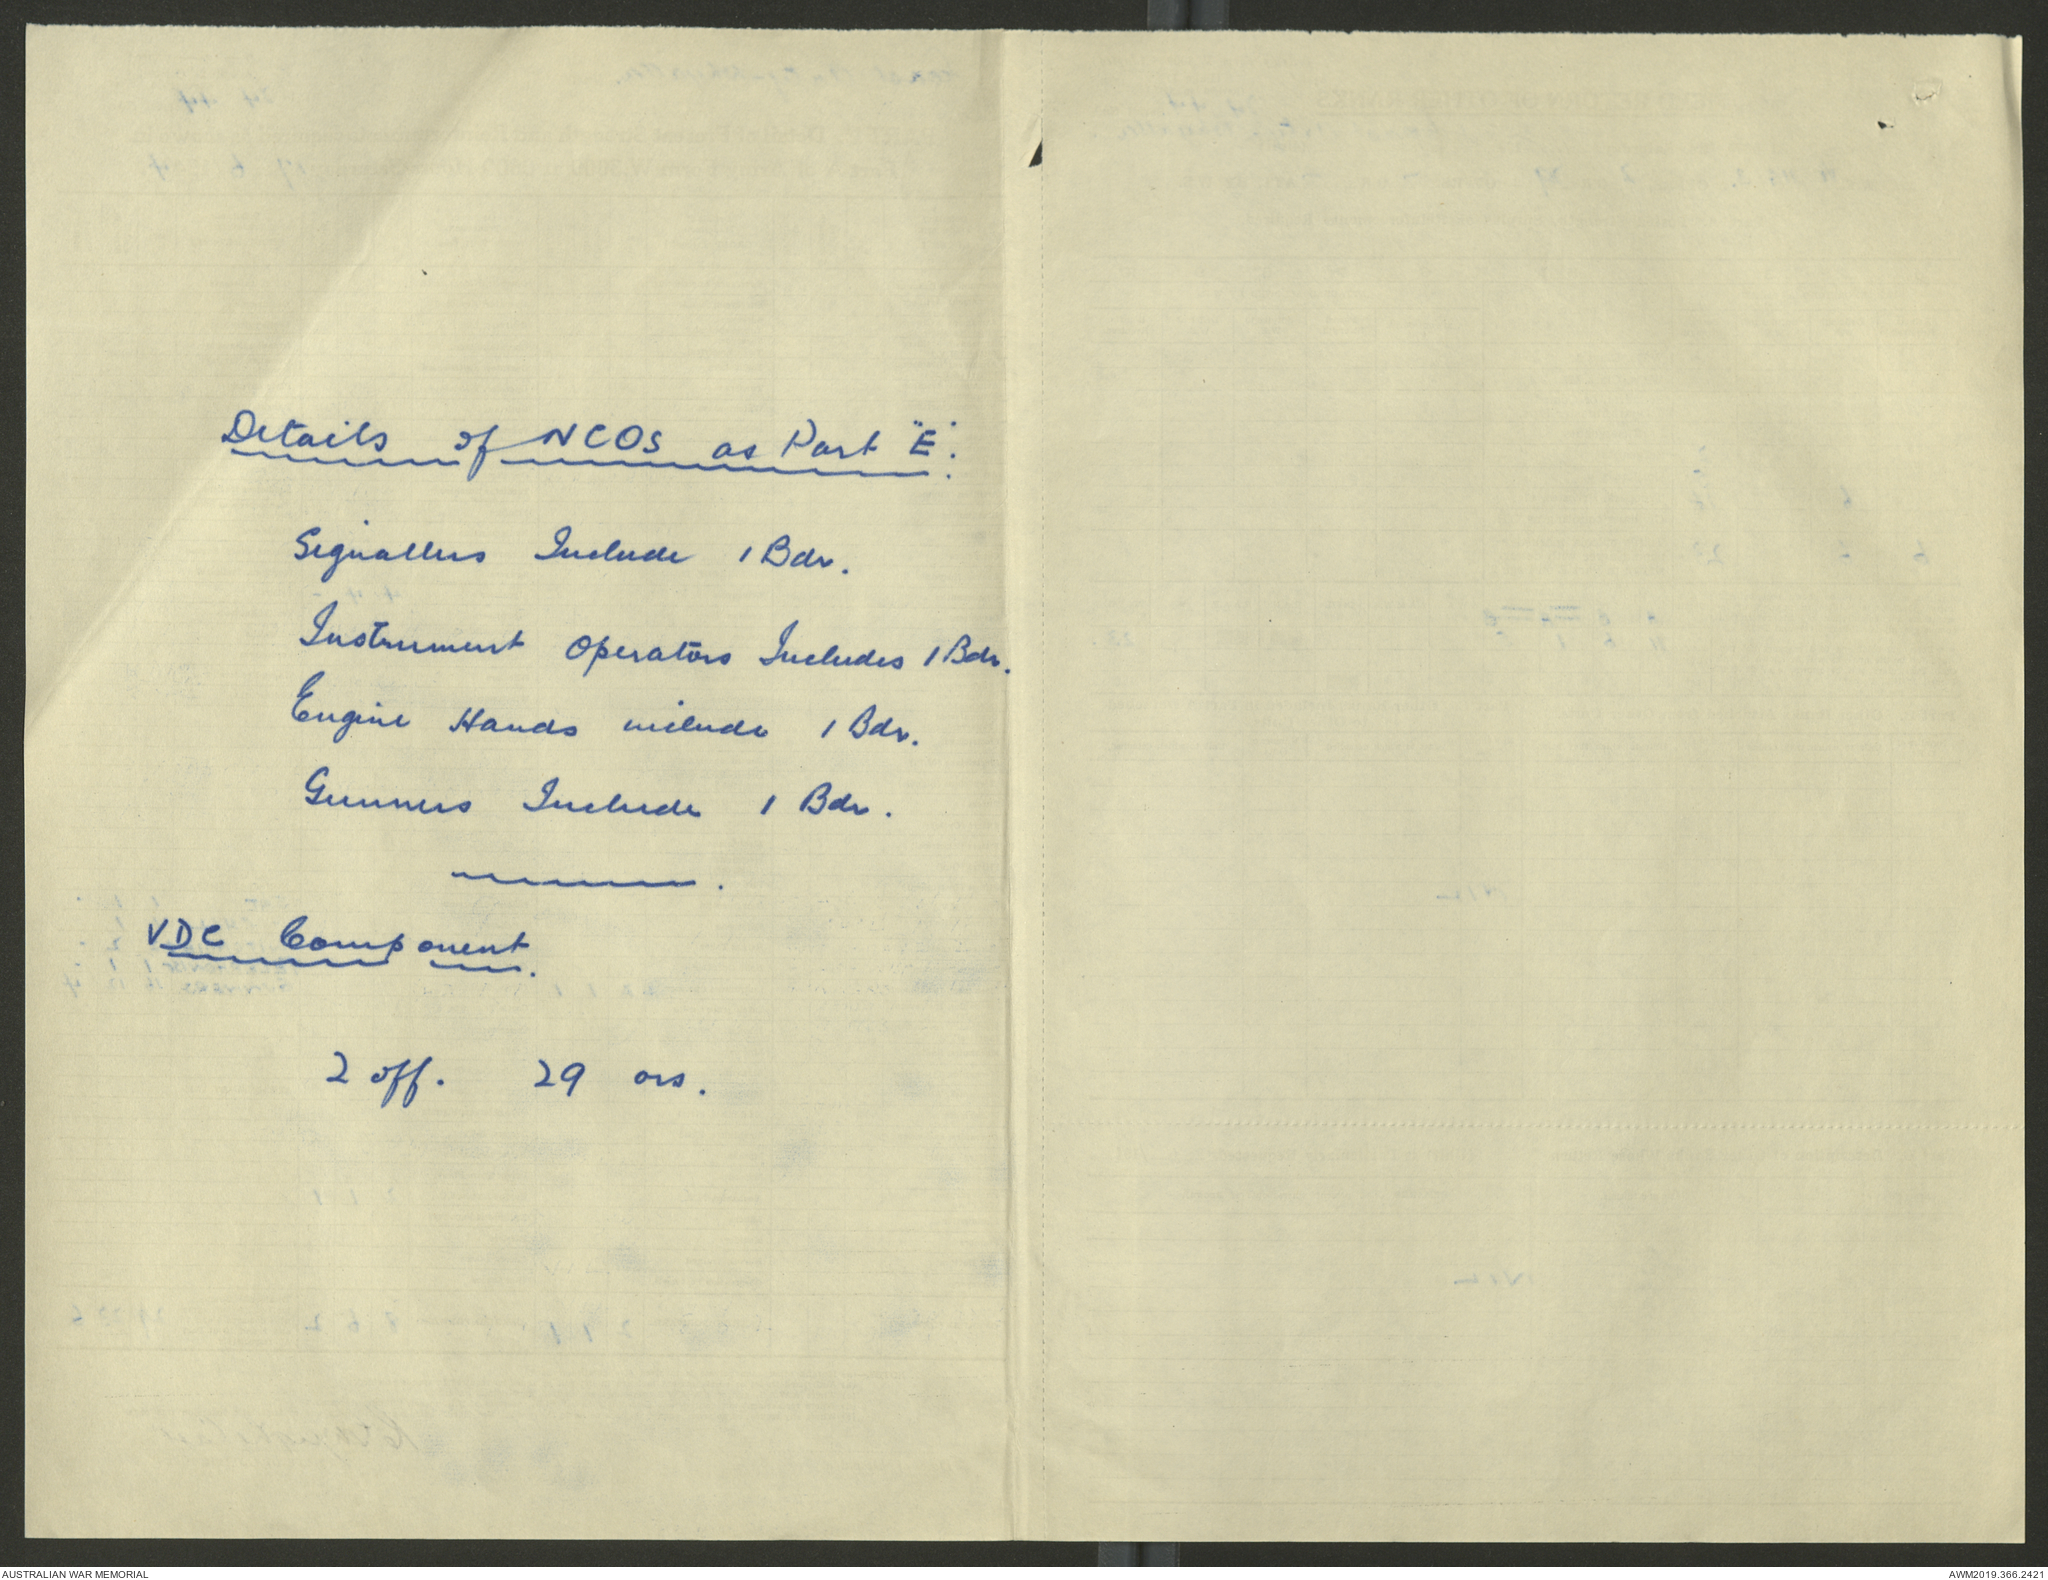 Details of NCOS as Part "E".
Signallers Include 1 Bdr.
Instrument Operators Includes 1 Bdr.
Engine Hands include 1 Bdr.
Gunners Include 1 Bdr.
VDC Component.
2 off. 29 ors.
AUSTRALIAN WAR MEMORIAL
AWM2019.366.2421